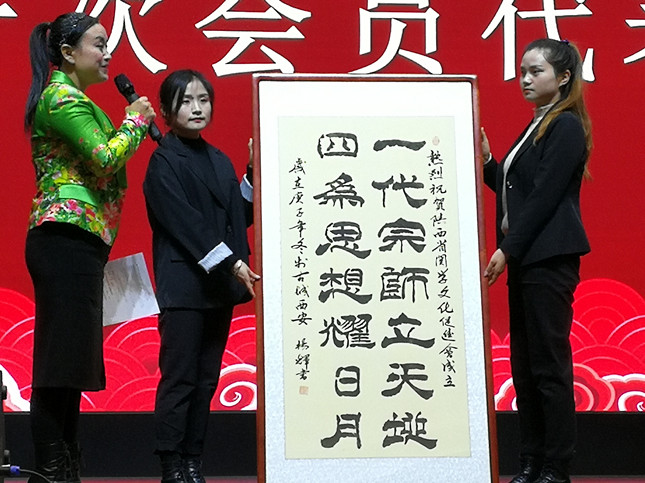 次会员代
熱烈祝贺陕西省関学文化促進会成立
一代宗師立天地
四為思想耀日月
歲在庚子年冬於古城西安 楊輝書